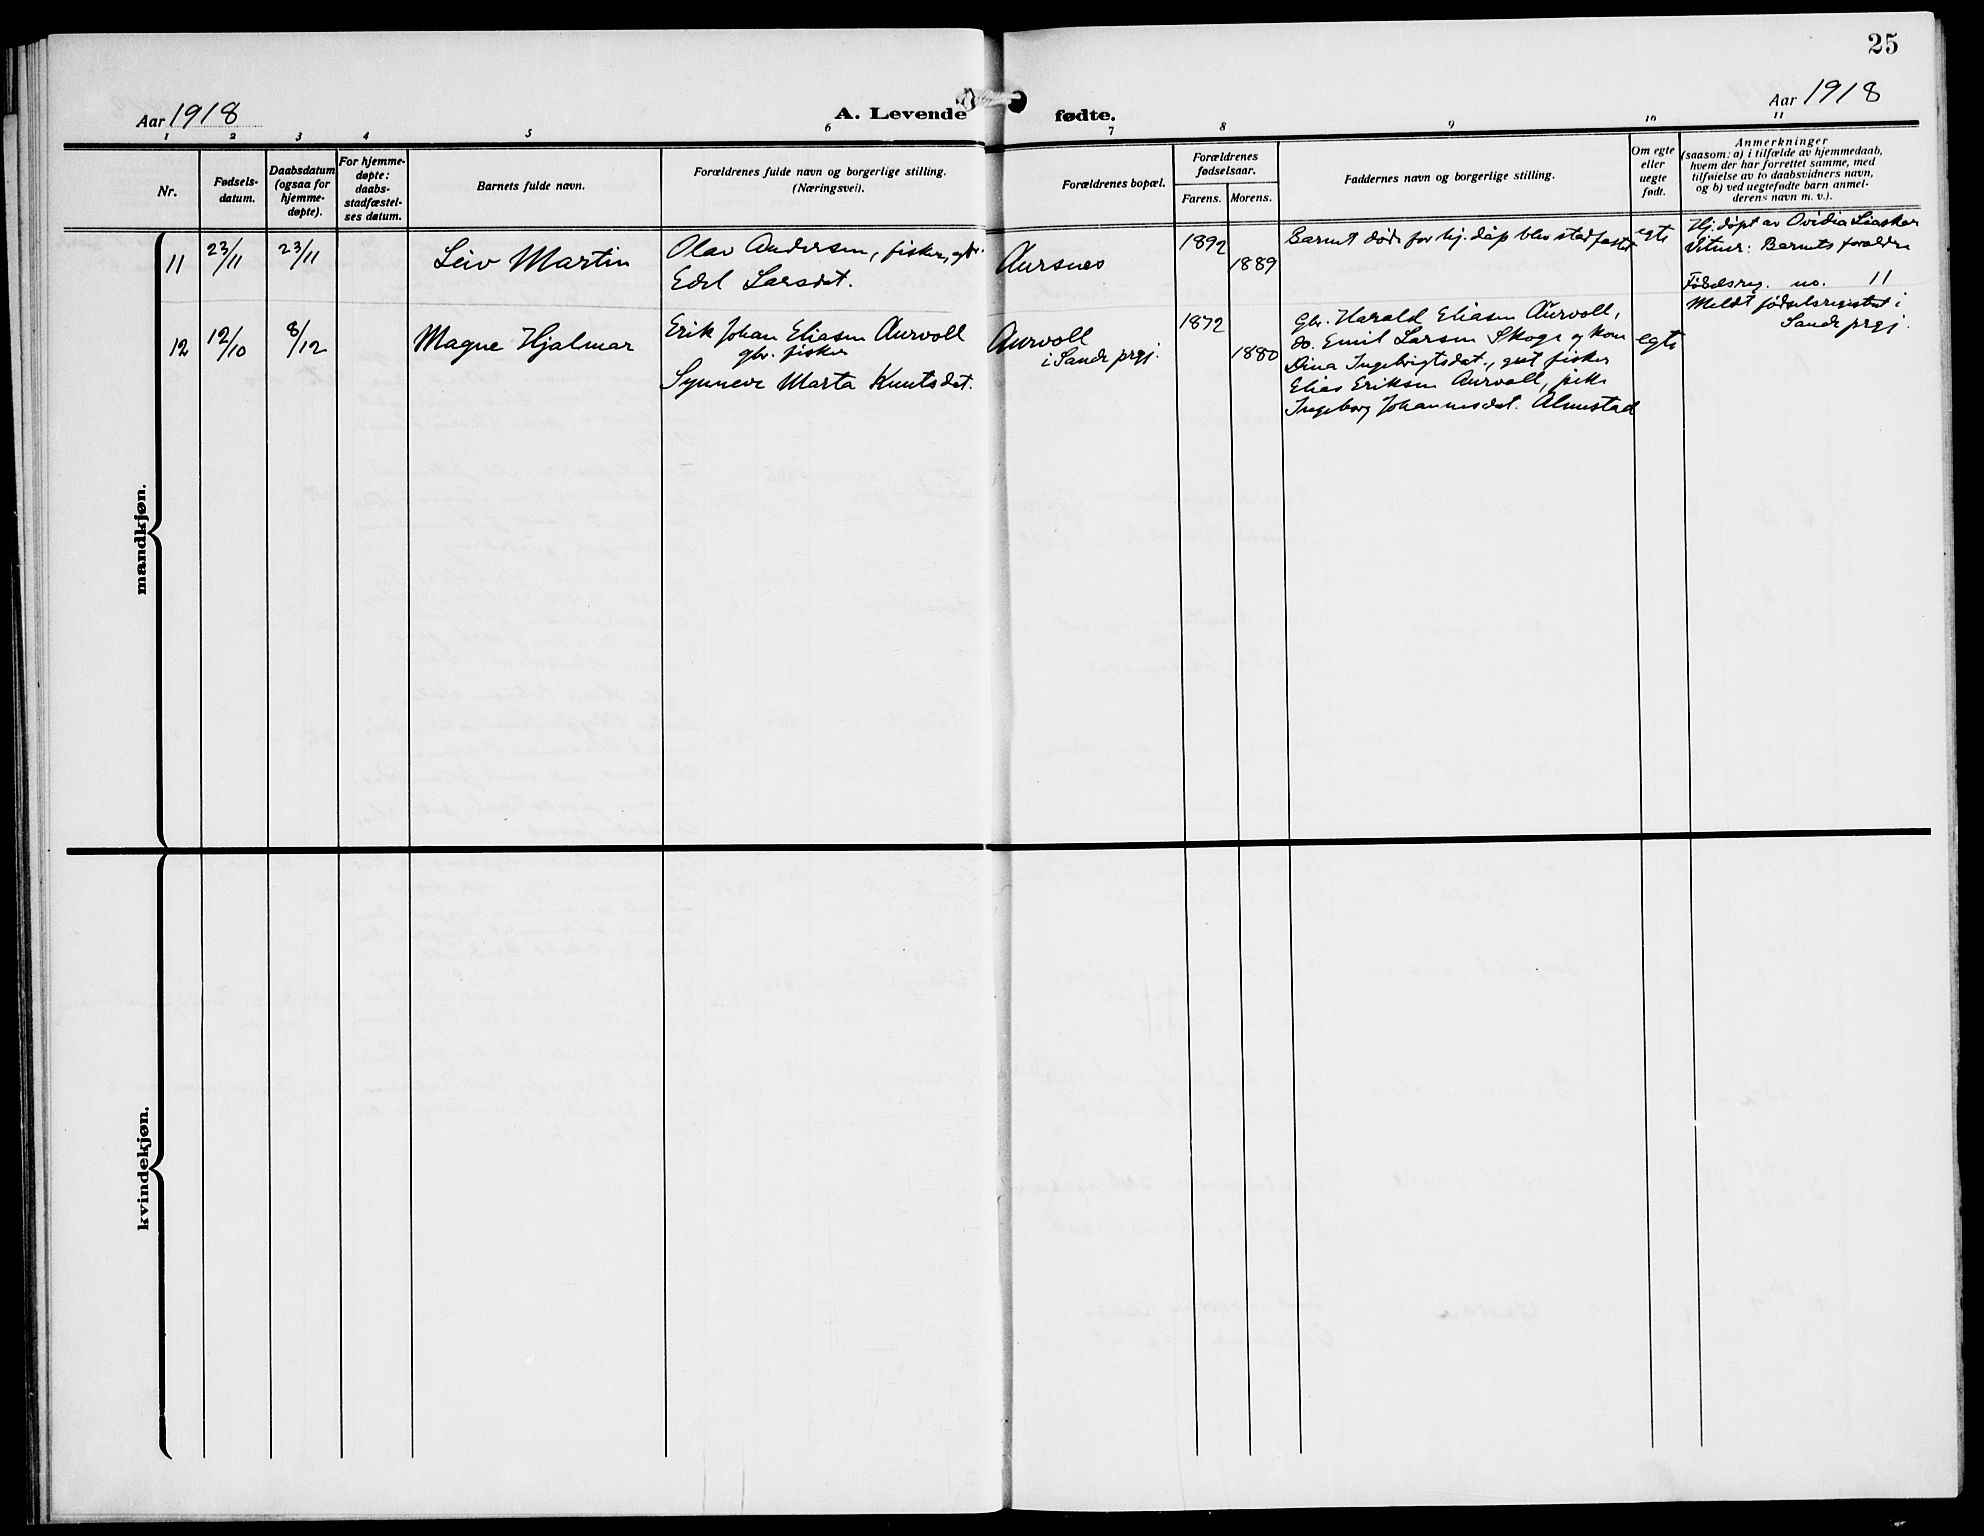 25
Aar 1918
A. Levende fødte.
Aar 1918
1 2 3 4 5 6 7 8 9 10 11
Nr.
Fødsels-
datum.
Daabsdatum
(ogsaa for
hjemme-
døpte).
For hjemme-
døpte:
daabs-
stadfæstel-
ses datum.
Barnets fulde navn.
Forældrenes fulde navn og borgerlige stilling.
(Næringsvei).
Forældrenes bopæl.
Forældrenes
fødselsaar.
Farens. Morens.
Faddernes navn og borgerlige stilling.
Om egte
eller
uegte
født.
Anmerkninger
(saasom: a) i tilfælde av hjemmedaab,
hvem der har forrettet samme, med
tilføielse av to daabsvidners navn,
og b) ved uegtefødte barn anmel-
derens navn m. v.).
mandkjøn.
11
23/11
23/11
Leiv Martin
Olav Andersen, fisker, og
Edel Larsdat.
Aursnes
1892
1889
Barnet døde før hj. dåp blev stadfæstet
egte
Hj. døpt av Ovidia Liaskar
Vitner: Barnets foraldre
Fødselsreg. no. 11
12
12/10
8/12
Magne Hjalmar
Erik Johan Eliasen Aurvoll
gbr. fisker
Synneve Marta Knutsdat.
Aurvoll
i Sande prgj.
1872
1880
Gbr. Harald Eliasen Aurvoll,
do. Emil Larsen Skoge og kone
Dina Ingebrigtsdat., gut fisker
Elias Eriksen Aurvoll, pike
Ingeborg Johannesdat. Almestad
egte
Meldt fødselsregistret i
Sande prgj.
kvindekjøn.